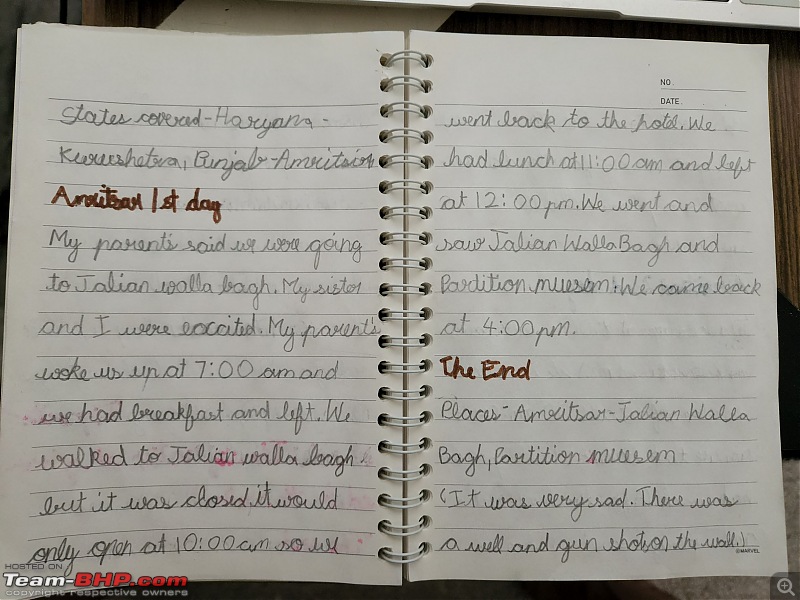 States covered-Haryana-
Kurushetra, Punjab-Amritsar
Amritsar 1st day
My parents said we were going
to Jalian walla bagh. My sister
and I were excited. My parent's
woke us up at 7:00 am and
we had breakfast and left. We
walked to Jalian walla bagh
but it was closed, it would
only open at 10:00 am so we
NO.
DATE.
went back to the hotel. We
had lunch at 11:00 am and left
at 12:00 pm. We went and
saw Jalian Walla Bagh and
Partition museem. We came back
at 4:00 pm.
The End
Places- Amritsar-Jalian Walla
Bagh, Partition museem
(It was very sad. There was
a well and gun shots, on the wall.)
©MARVEL
HOSTED ON
Team-BHP.com
copyright respective owners